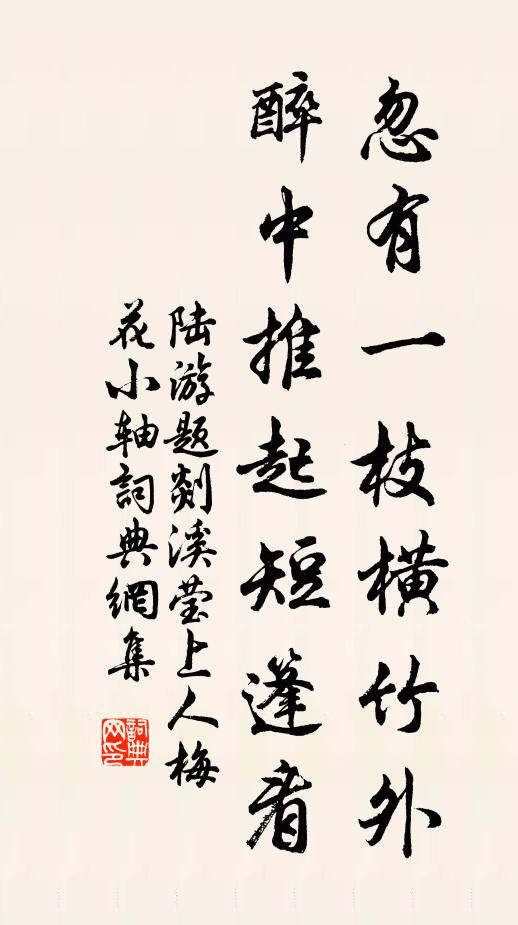 忽有一枝橫竹外
醉中推起短篷看
陆游題剡溪莹上人梅
花小轴詞典網集
詞典網印